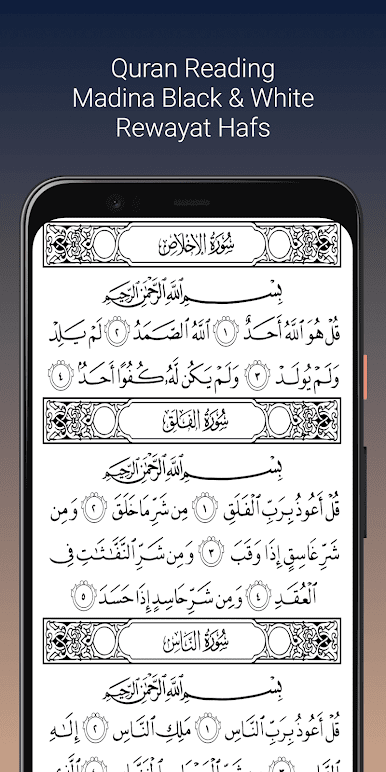 Quran Reading
Madina Black & White
Rewayat Hafs
سُورَةُ الإِخْلَاصِ
بِسْمِ اللَّهِ الرَّحْمَٰنِ الرَّحِيمِ
قُلْ هُوَ اللَّهُ أَحَدٌ ١ اللَّهُ الصَّمَدُ ٢ لَمْ يَلِدْ
وَلَمْ يُولَدْ ٣ وَلَمْ يَكُن لَّهُ كُفُوًا أَحَدٌ ٤
سُورَةُ الفَلَقِ
بِسْمِ اللَّهِ الرَّحْمَٰنِ الرَّحِيمِ
قُلْ أَعُوذُ بِرَبِّ الْفَلَقِ ١ مِن شَرِّ مَا خَلَقَ ٢ وَمِن
شَرِّ غَاسِقٍ إِذَا وَقَبَ ٣ وَمِن شَرِّ النَّفَّاثَاتِ فِي
الْعُقَدِ ٤ وَمِن شَرِّ حَاسِدٍ إِذَا حَسَدَ ٥
سُورَةُ النَّاسِ
بِسْمِ اللَّهِ الرَّحْمَٰنِ الرَّحِيمِ
قُلْ أَعُوذُ بِرَبِّ النَّاسِ ١ مَلِكِ النَّاسِ ٢ إِلَٰهِ